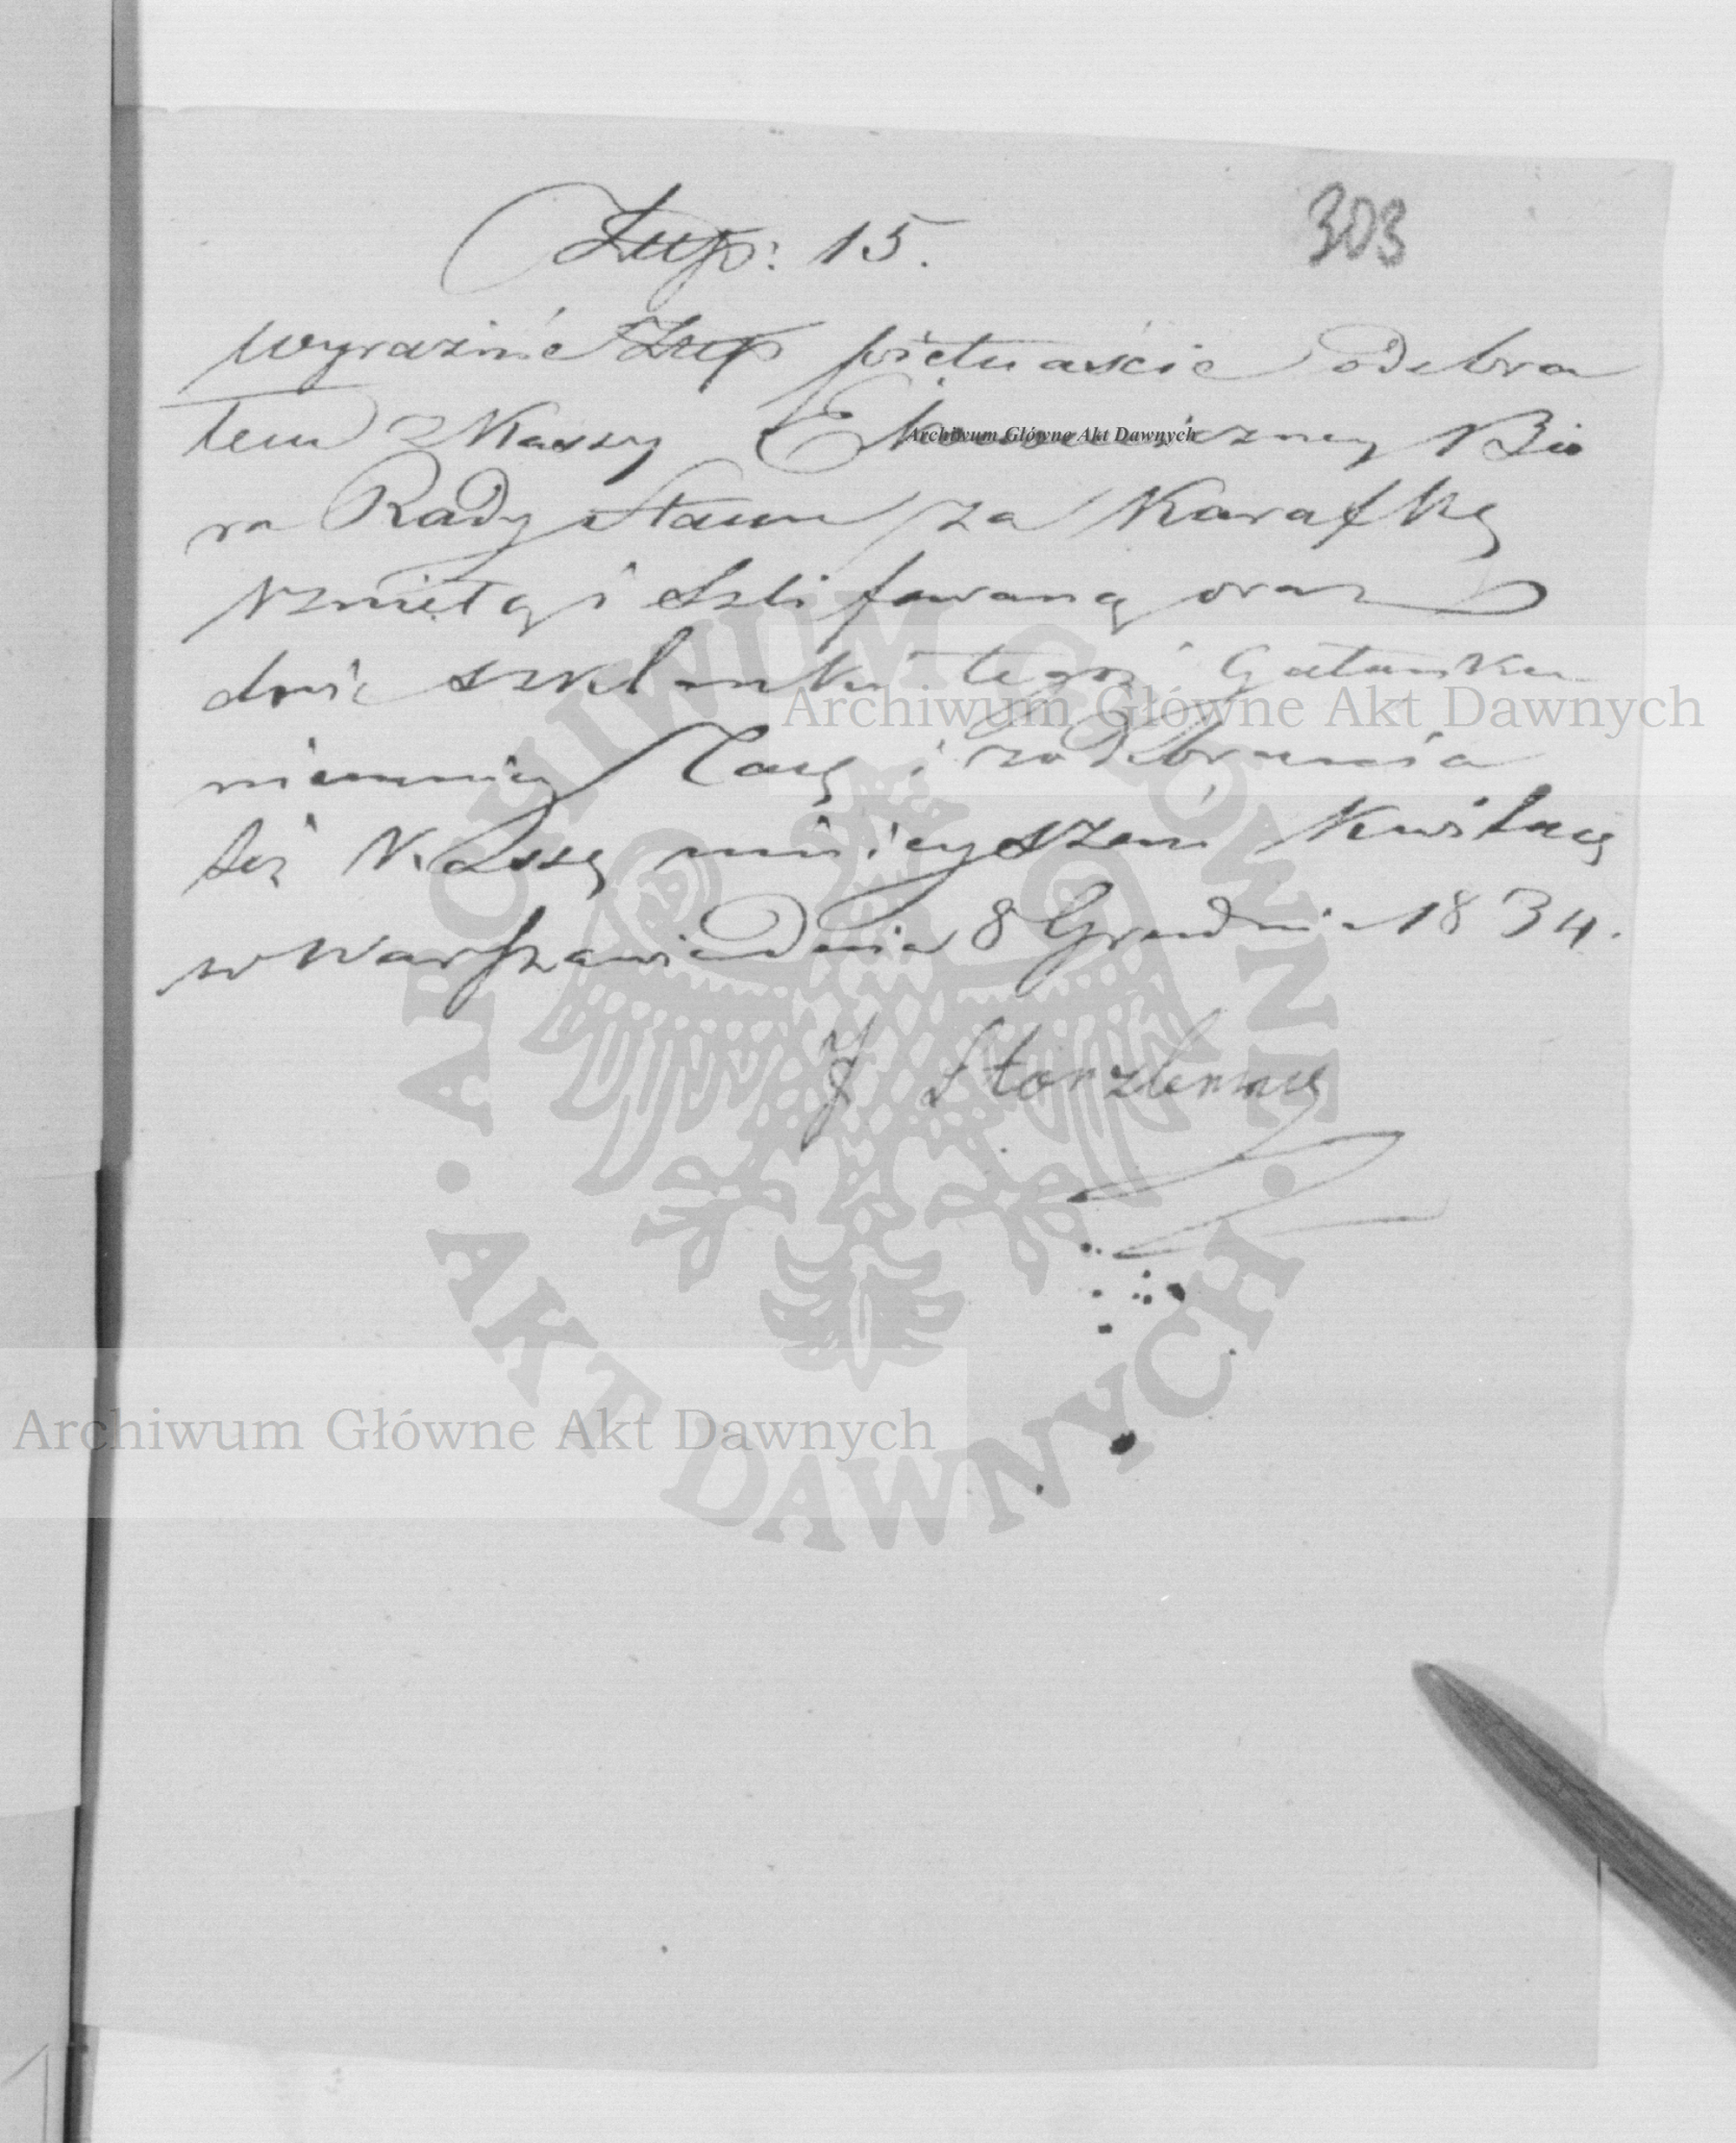 Złłp: 15. 303
wyraźnie Złłp piętnaście odebra
łem z Kassy Ekonomiczney Biu
ra Rady Stanu za Karafkę
rzniętą i szlifowaną oraz
dwie szklanki tegoż Gatunku
i z odebrania
też Kassę ninieyszem Kwituię
w Warszawie Dnia 8 Grudnia 1834.
J
Archiwum Główne Akt Dawnych
Archiwum Główne Akt Dawnych
Archiwum Główne Akt Dawnych
ARCHIWUM GŁÓWNE · AKT DAWNYCH ·